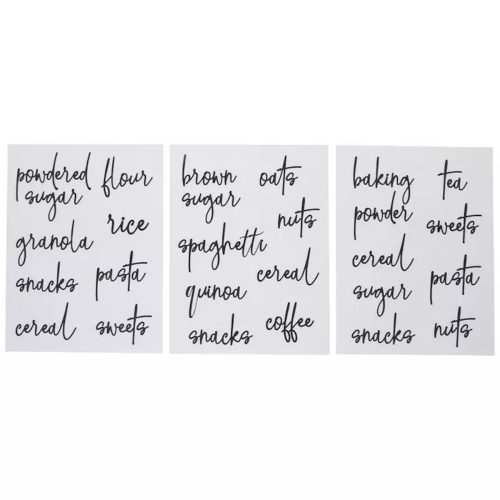 powdered flour
sugar
rice
granola
snacks pasta
cereal sweets
brown oats
sugar
nuts
spaghetti
cereal
quinoa
coffee
snacks
baking tea
powder sweets
cereal
sugar pasta
snacks nuts